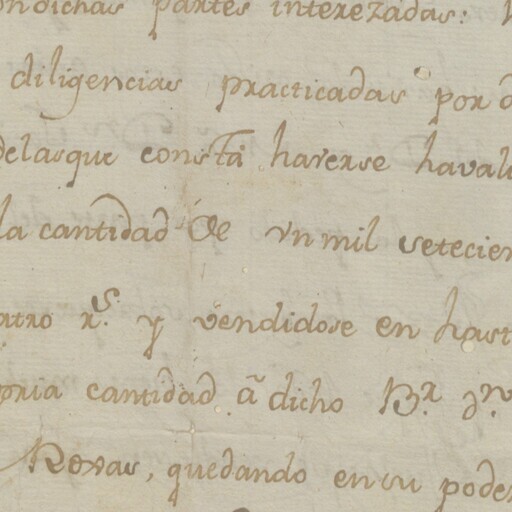 ondichas partes interezadas:
diligencias practicadas por
delasque consta haverse havalu
la cantidad de vn mil setecien
atro r.s y vendidose en hast
pria cantidad â dicho B.r
Roxas, quedando en su poder